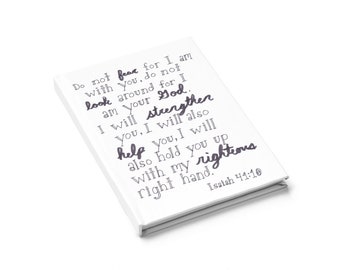 Do not fear for I am
with you, do not
look around for I
am your God.
I will strengthen
you, I will also
help you, I will
also hold you up
with my righteous
right hand.
Isaiah 41:10